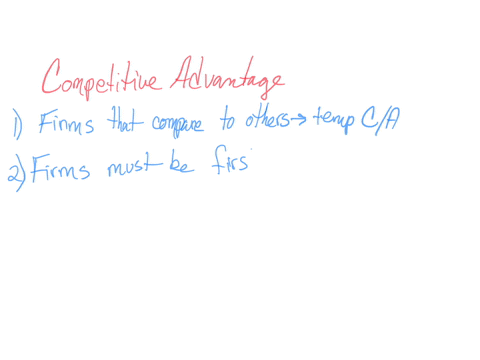 Competitive Advantage
1) Firms that compare to others → temp C/A
2) Firms must be firs